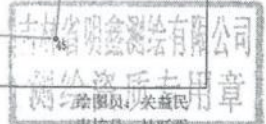 吉林省明金测绘有限公司
45
测绘资质专用章
绘图员：关益民